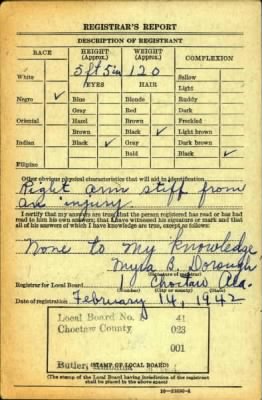 REGISTRAR'S REPORT
DESCRIPTION OF REGISTRANT
RACE HEIGHT (Approx.) WEIGHT (Approx.) COMPLEXION
White 5 ft 5 in 120 Sallow
EYES HAIR Light
Negro ✓ Blue Blonde Ruddy
Gray Red Dark
Oriental Hazel Brown Freckled
Brown Black ✓ Light brown
Indian Black ✓ Gray Dark brown
Bald Black ✓
Filipino
Other obvious physical characteristics that will aid in identification
Right arm stiff from
an injury.
I certify that my answers are true; that the person registered has read or has had
read to him his own answers; that I have witnessed his signature or mark and that
all of his answers of which I have knowledge are true, except as follows:
None to my knowledge
Myla B. Dorough
(Signature of registrar)
Registrar for Local Board Choctaw Ala.
(Number) (City or county) (State)
Date of registration February 16, 1942
Local Board No. 41
Choctaw County 023
001
Butler,
(STAMP OF LOCAL BOARD)
(The stamp of the Local Board having jurisdiction of the registrant
shall be placed in the above space)